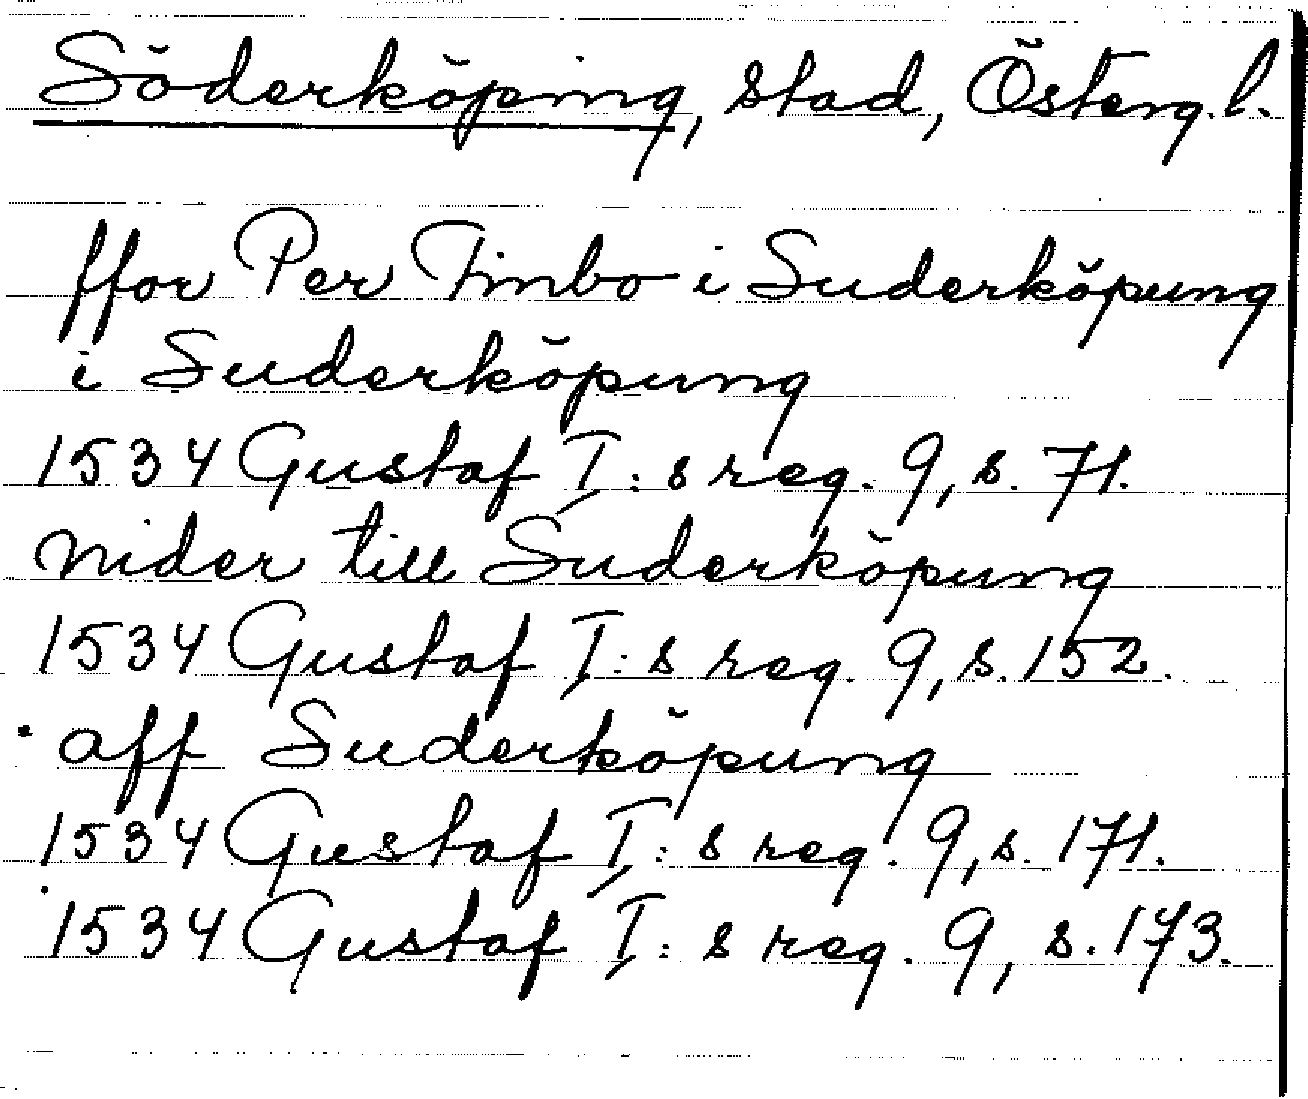 Söderköping, stad, Österg.l.
ffor Per Timbo i Suderköpung
i Suderköpung
1534 Gustaf I:s reg. 9, s. 71.
nider till Suderköpung
1534 Gustaf I:s reg. 9, s. 152.
aff Suderköpung
1534 Gustaf I:s reg. 9, s. 171.
1534 Gustaf I:s reg. 9, s. 173.